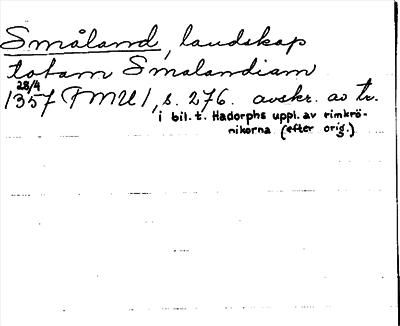 Småland, landskap
totam Smalandiam
28/4
1357 FMU 1, s. 276. avskr. av tr.
i bil. t. Hadorphs uppl. av rimkrö-
nikorna (efter orig.)